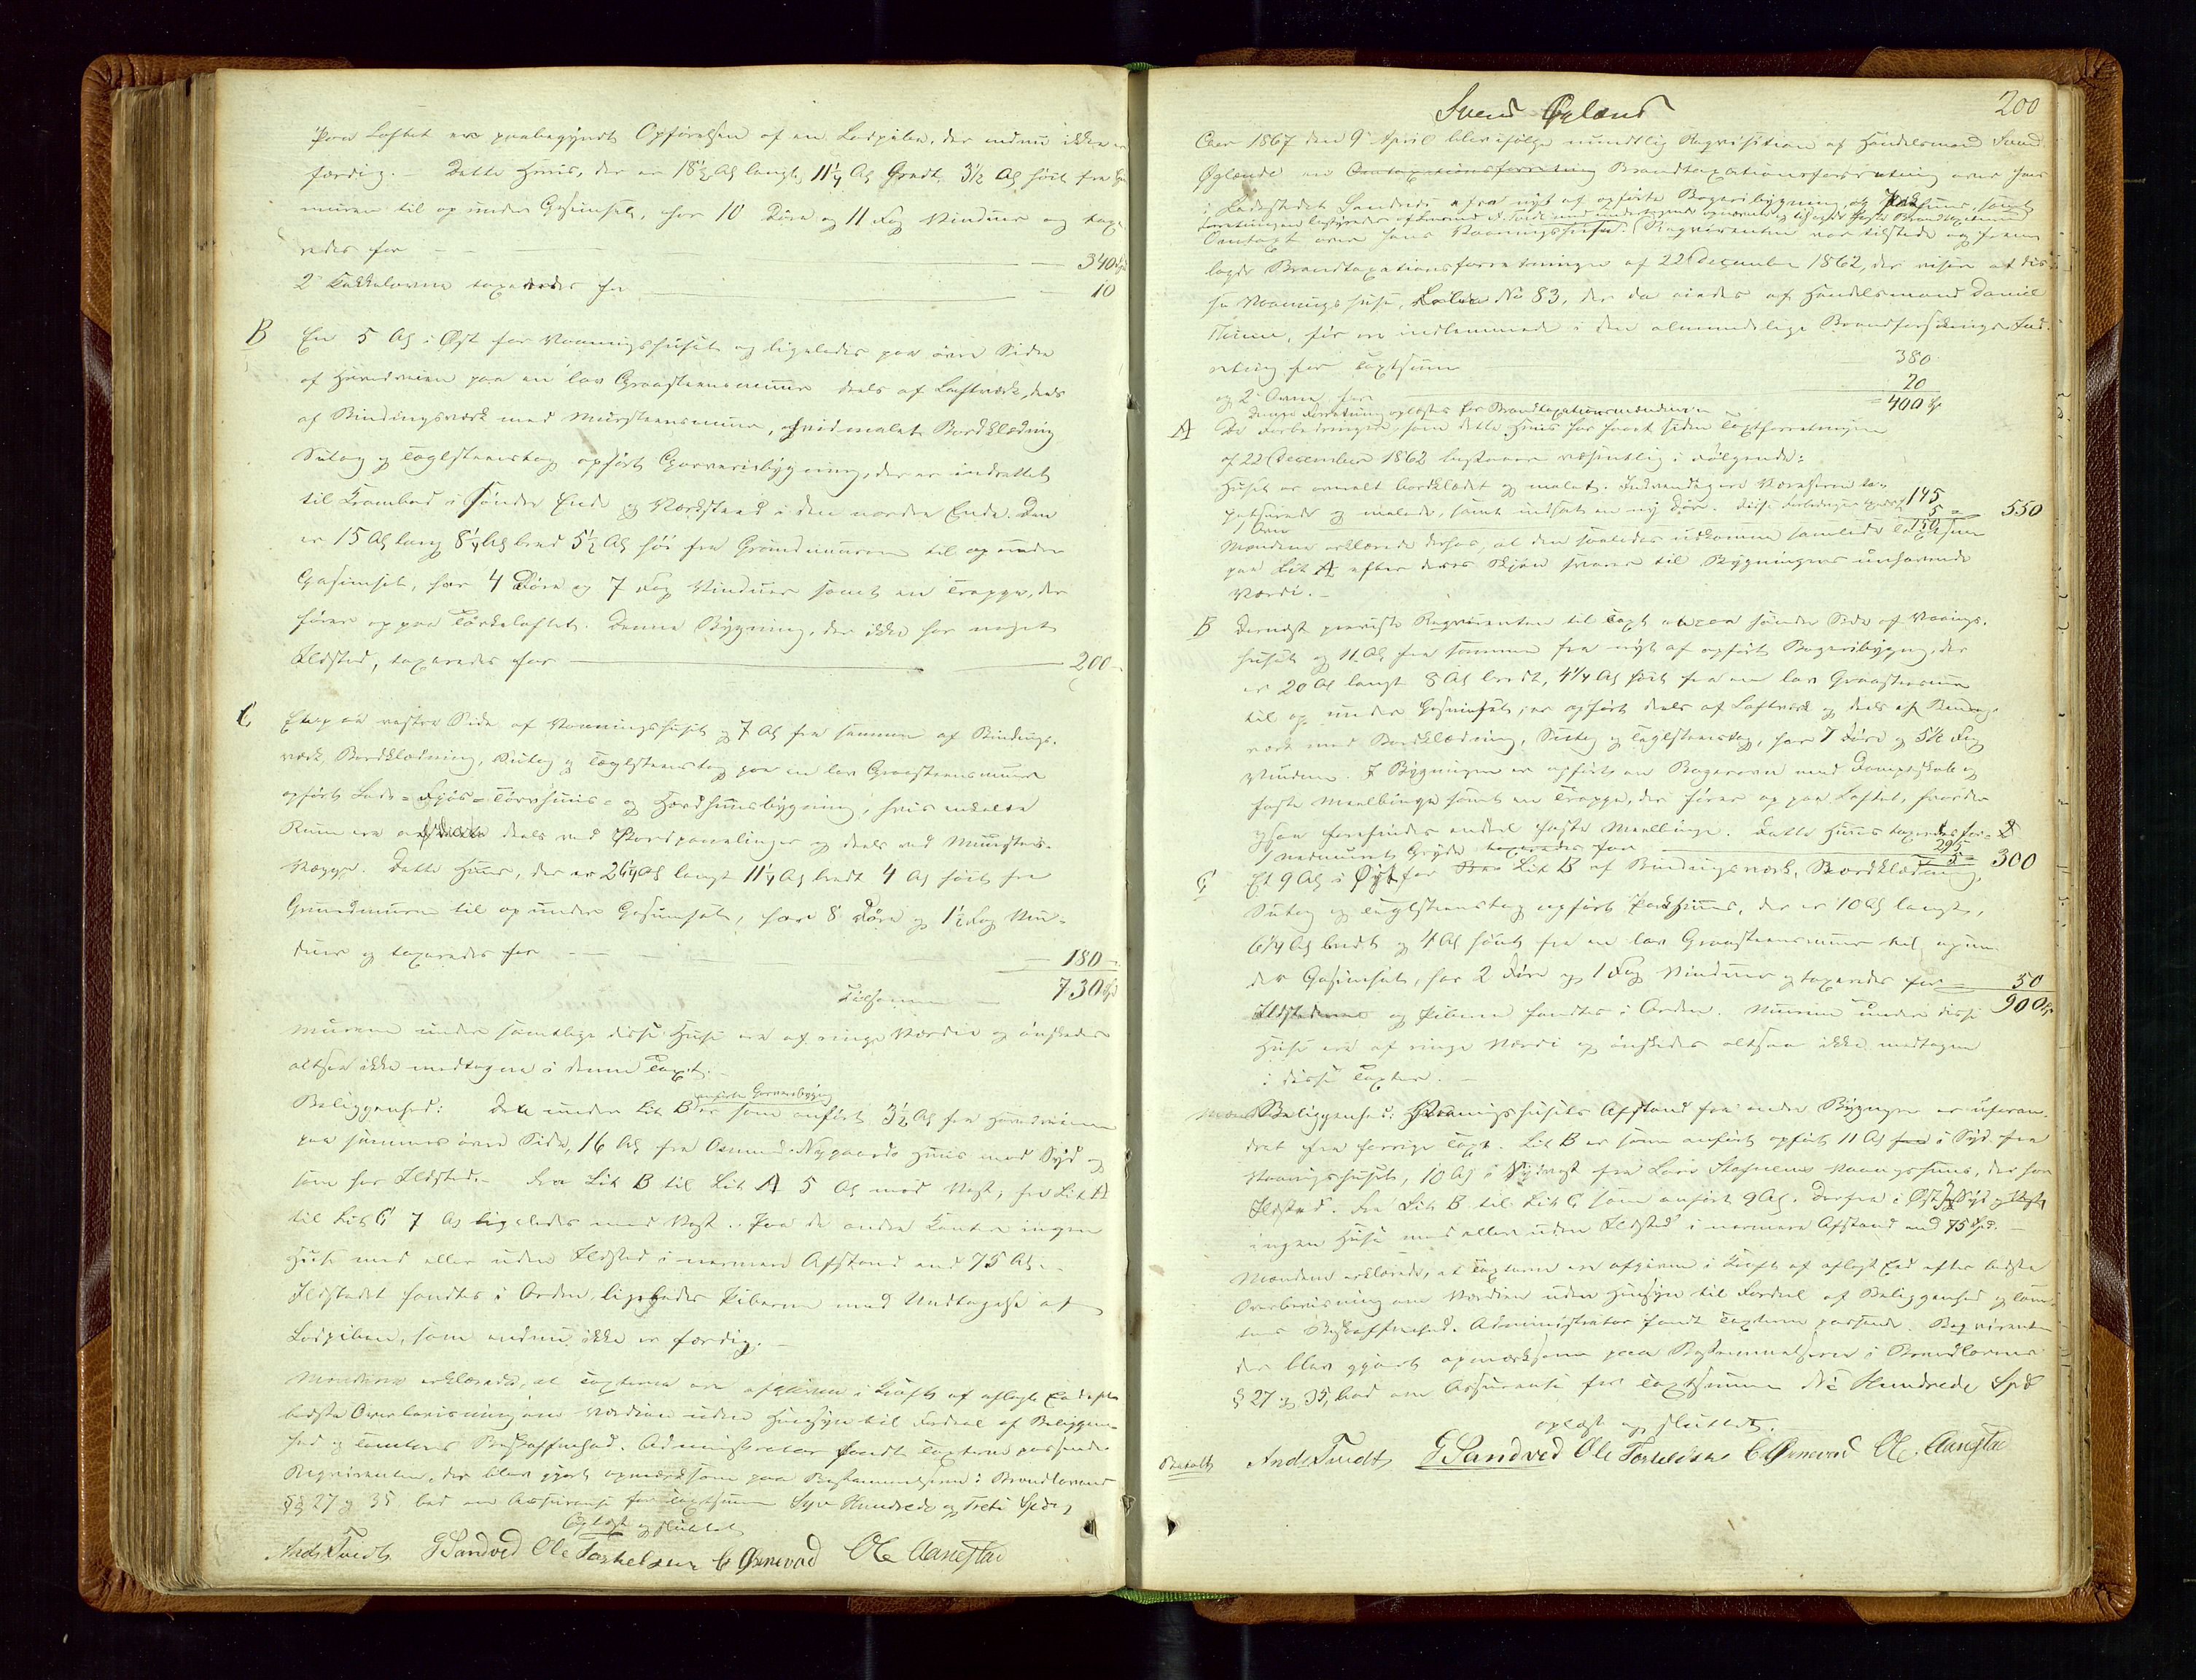 Paa Loftet er paabegyndt Opførelsen af en Ladpibe, der endnu ikke er
færdig. – Dette Huus, der er 18½ Al langt, 11¼ Al Bredt, 3½ Al høit fra Gr
muren til op under Gesimset, har 10 Døre og 11 Fag Vinduer og taxe
redes for 340 Spd
2 Kakkelovne taxeredes for 10
B En 5 Al i Øst for Vaaningshuset og ligeledes paa øvre Side
af Hovedveien paa en lav Graasteensmuur deels af Laftværk, deels
af Bindingsværk med Mursteensmuur, hvidmalet Bordklædning
Sutag og Taglsteenstag opført Garveribygning, der er indrettet
til Krambod i søndre Ende og Værksted i den nordre Ende. Den
er 15 Al lang 8¼ Al bred 5½ Al høi fra Grundmuren til op under
Gesimset, har 4 Døre og 7 Fag Vinduer samt en Trappe, der
fører op paa Tørkeloftet. Denne Bygning, der ikke har noget
Ildsted, taxeredes for 200 –
C Et paa vestre Side af Vaaningshuset og 7 Al fra samme af Bindings-
værk, Bordklædning, Sutag og Taglsteenstag paa en lav Graasteensmuur
opført Lade- Fjøs- Tørvhuus- og Færdhuusbygning, hvis enkelte
Rum ere deels ved Bordpanelinger og deels ved Muursteens-
vægge. Dette Huus, der er 26¼ Al langt 11¼ Al bredt 4 Al høit fra
Grundmuren til op under Gesimset, har 8 Døre og 1½ Fag Vin-
duer og taxeredes for 180 –
Tilsammen – 730 Spd
Murene under samtlige disse Huse ere af ringe Værdie og ønskedes
altsaa ikke medtagne i denne Taxt. –
anførte Garveribygning
Beliggenhed: Den under Lit B er som anført 3½ Al fra Hovedveien
paa sammes øvre Side, 16 Al fra Asmund Nygaards Huus mod Syd og
som har Ildsted. Fra Lit B til Lit A 5 Al mod Vest, fra Lit A
til Lit C 7 Al ligeledes mod Vest. Paa de andre Kanter ingen
Huse med eller uden Ildsted i nærmere Afstand end 75 Al. –
Ildstedet fandtes i Orden, ligeledes Piberne med Undtagelse af
Ladpiben, som endnu ikke er færdig. –
Mændene erklærede, at Taxterne ere afgivne i Kraft af aflagt Eed efter
bedste Overbeviisning om Værdien uden Hensyn til Fordeel af Beliggen-
hed og Tomtens Beskaffenhed. Administrator fandt Taxterne passende.
Reqvirenten, der blev gjort opmærksom paa Bestemmelserne i Brandlovens
§§ 27 og 35 bad om Assurance for Taxtsummen Syv Hundrede og Treti Spd,
Oplæst og sluttet
Ands Tvedt G Sandved Ole Torkelsen C Ørnevad Ole Aanestad
200
Svend Øglænd
Aar 1867 den 9 April blev ifølge mundtlig Reqvisition af Handelsmand Svend
Øglænd en Omtaxationsforretning Brandtaxationsforretning over hans
i Ladestedet Sandnes fra nyt af opførte Bageribygning, og Pakhuus, samt
Omtaxt over hans Vaaningshuus. Reqvirenten var tilstede og frem
lagde Brandtaxationsforretningen af 22 December 1862, der viser at dis
se Vaaningshuse, No 83, der da eiedes af Handelsmand Daniel
Thime, før ere indlemmede i den almindelige Brandforsikrings Ind-
retning for Taxtsum 380
og 2 Ovne for 20
400 Spd
Denne Forretning oplæstes for Brandtaxationsmændene. –
A De Forbedringer, som dette Huus har faaet siden Taxtforretningen
af 22 December 1862 bestaaer væsentlig i Følgende:
Huset er omalt bordklædt og malet. Indvendig ere Værelserne ta-
petserede og malede, samt indsat en ny Dør. Disse Forbedringer 145
1 Ovn 5 = 550
150
Mændene erklærede derhos, at den saaledes udkomne samlede Taxtsum
paa Lit A efter deres Skjøn svarer til Bygningens nuværende
Værdi. –
B Dernæst paaviiste Reqvirenten til Taxt paa søndre Side af Vaanings-
huset og 11 Al fra samme fra nyt af opført Bageribygning, der
er 20 Al langt 8 Al bredt, 4¼ Al høit fra en lav Graasteensmuur
til op under Gesimset, er opført deels af Laftværk og deels af Bindings-
værk med Bordklædning, Sutag og Taglsteenstag, har 7 Døre og 5½ Fag
Vinduer. I Bygningen er opført en Bagerovn med Dampskab og
faste Meelbinger samt en Trappe, der fører op paa Loftet, hvor der
ogsaa forefindes endeel faste Meelbinge. Dette Huus taxeredes for
1 indmuret Gryde taxeredes for 295
5 = 300
C Et 9 Al i Øst for Lit B af Bindingsværk, Bordklædning,
Sutag og Taglsteenstag opført Pakhuus, der er 10 Al langt,
6¼ Al bredt og 4 Al høit fra en lav Graasteensmuur til op un-
der Gesimset, har 2 Døre og 1 Fag Vinduer og taxeredes for 50
900 Spd
Ildstederne og Piberne fandtes i Orden. Murene under disse
Huse ere af ringe Værdi og ønskedes altsaa ikke medtagne
i disse Taxter. –
Beliggenhed: Vaaningshusets Afstand fra andre Bygninger er uforan-
dret fra forrige Taxt. Lit B er som anført opført 11 Al i Syd fra
Vaaningshuset, 10 Al i Sydvest fra Lars Vaaningshuus, der har
Ildsted. Fra Lit B til Lit C som anført 9 Al. Derfra i Øst, Syd og Vest
ingen Huse med eller uden Ildsted i nærmere Afstand end 75 Al. –
Mændene erklærede, at Taxterne ere afgivne i Kraft af aflagt Eed efter bedste
Overbeviisning om Værdien uden Hensyn til Fordeel af Beliggenhed og Tom-
tens Beskaffenhed. Administrator fandt Taxterne passende. Reqvirenten
der blev gjort opmærksom paa Bestemmelserne i Brandlovens
§ 27 og 35, bad om Assurance for Taxtsummen Ni Hundrede Spd
oplæst og sluttet.
Betalt Ands Tvedt G Sandved Ole Torkelsen C Ørnevad Ole Aanestad